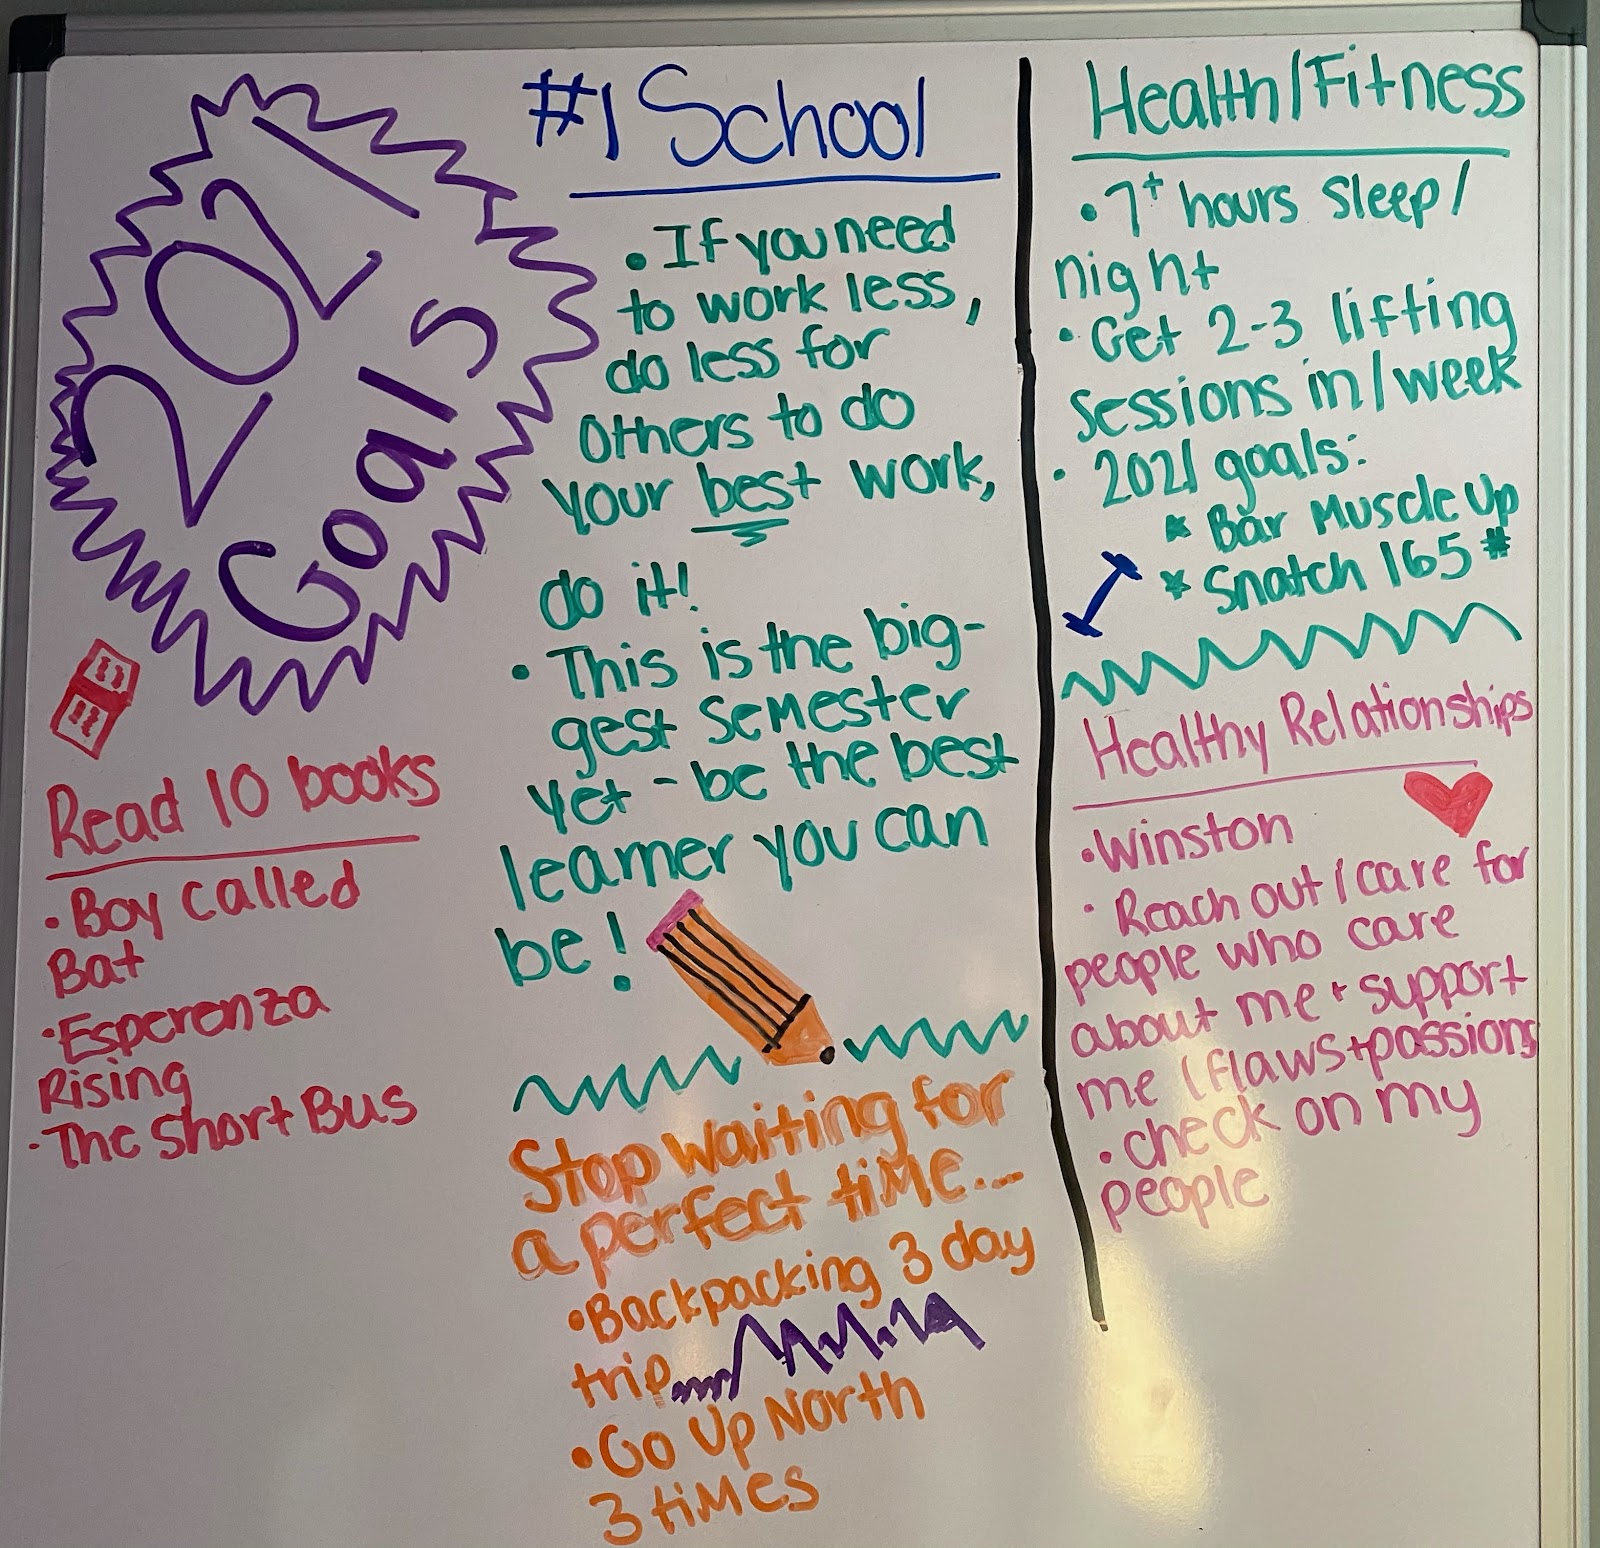 2021
Goals
Read 10 books
• Boy called
Bat
• Esperenza
Rising
• The Short Bus
#1 School
• If you need
to work less,
do less for
others to do
your best work,
do it!
• This is the big-
gest semester
yet - be the best
learner you can
be!
Stop waiting for
a perfect time...
• Backpacking 3 day
trip
• Go Up North
3 times
Health/Fitness
• 7+ hours sleep/
night
• Get 2-3 lifting
sessions in/week
• 2021 goals:
* Bar Muscle Up
* Snatch 165#
Healthy Relationships
• Winston
• Reach out/care for
people who care
about me + support
me (flaws + passions
• check on my
people